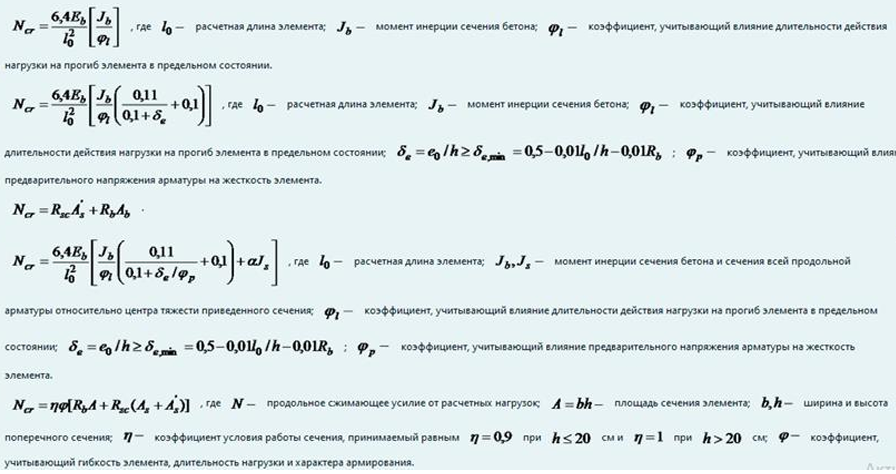 N_cr = 6,4E_b / l_0^2 [ J_b / φ_l ] , где l_0 – расчетная длина элемента; J_b – момент инерции сечения бетона; φ_l – коэффициент, учитывающий влияние длительности действия
нагрузки на прогиб элемента в предельном состоянии.
N_cr = 6,4E_b / l_0^2 [ J_b / φ_l ( 0,11 / (0,1 + δ_e) + 0,1 ) ] , где l_0 – расчетная длина элемента; J_b – момент инерции сечения бетона; φ_l – коэффициент, учитывающий влияние
длительности действия нагрузки на прогиб элемента в предельном состоянии; δ_e = e_0 / h ≥ δ_e,min = 0,5 – 0,01l_0 / h – 0,01R_b ; φ_p – коэффициент, учитывающий
предварительного напряжения арматуры на жесткость элемента.
N_cr = R_sc A_s' + R_b A_b .
N_cr = 6,4E_b / l_0^2 [ J_b / φ_l ( 0,11 / (0,1 + δ_e / φ_p) + 0,1 ) + αJ_s ] , где l_0 – расчетная длина элемента; J_b, J_s – момент инерции сечения бетона и сечения всей продольной
арматуры относительно центра тяжести приведенного сечения; φ_l – коэффициент, учитывающий влияние длительности действия нагрузки на прогиб элемента в предельном
состоянии; δ_e = e_0 / h ≥ δ_e,min = 0,5 – 0,01l_0 / h – 0,01R_b ; φ_p – коэффициент, учитывающий влияние предварительного напряжения арматуры на жесткость
элемента.
N_cr = ηφ[R_b A + R_sc (A_s + A_s')] , где N – продольное сжимающее усилие от расчетных нагрузок; A = bh – площадь сечения элемента; b, h – ширина и высота
поперечного сечения; η – коэффициент условия работы сечения, принимаемый равным η = 0,9 при h ≤ 20 см и η = 1 при h > 20 см; φ – коэффициент,
учитывающий гибкость элемента, длительность нагрузки и характера армирования.